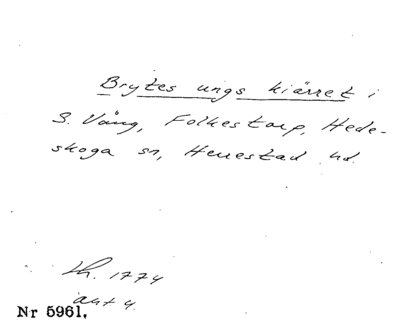 Brytes ungs kiärret i
3. Vång, Folkestorp, Hede-
skoga sn, Herrestad hd.
Lh. 1774
akt 4.
Nr 5961.